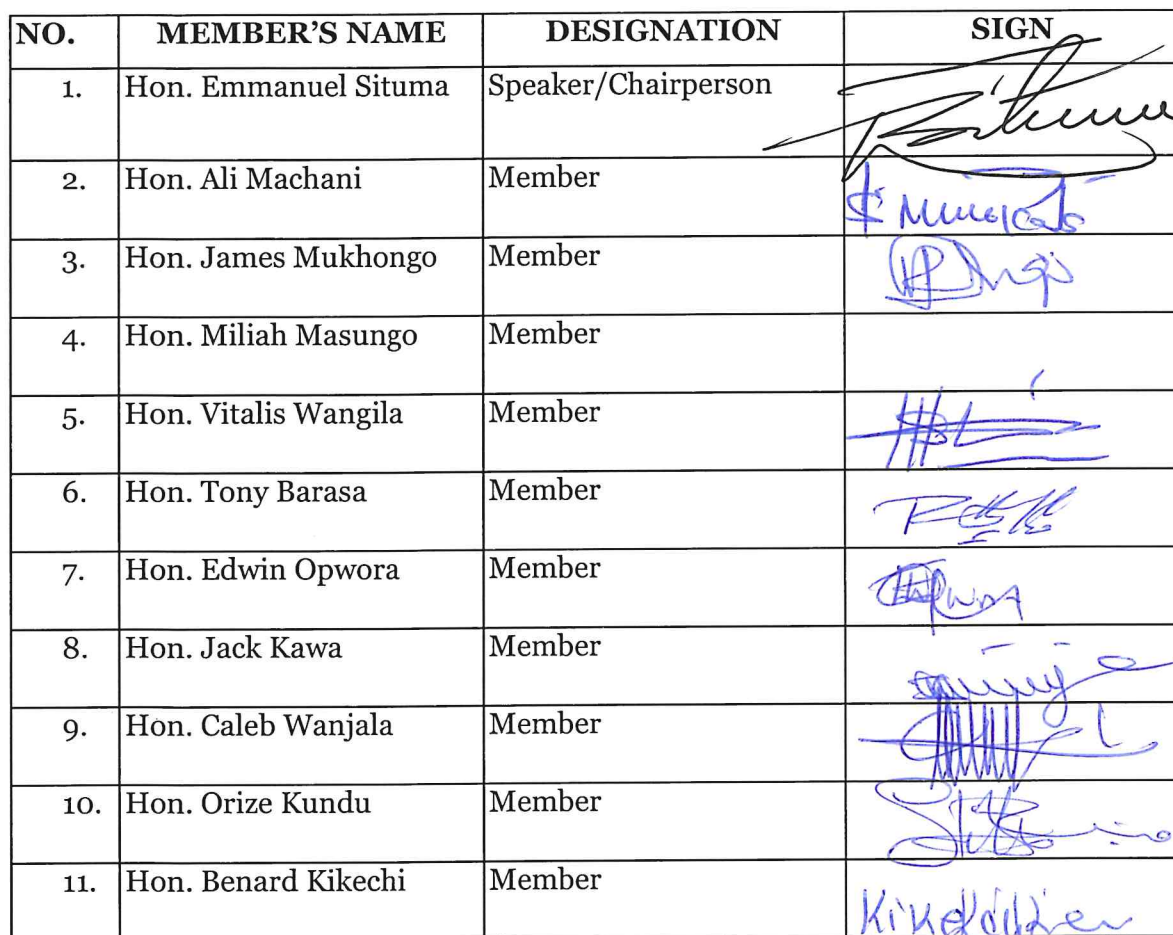 NO. MEMBER'S NAME DESIGNATION SIGN
1. Hon. Emmanuel Situma Speaker/Chairperson
2. Hon. Ali Machani Member
3. Hon. James Mukhongo Member
4. Hon. Miliah Masungo Member
5. Hon. Vitalis Wangila Member
6. Hon. Tony Barasa Member
7. Hon. Edwin Opwora Member
8. Hon. Jack Kawa Member
9. Hon. Caleb Wanjala Member
10. Hon. Orize Kundu Member
11. Hon. Benard Kikechi Member